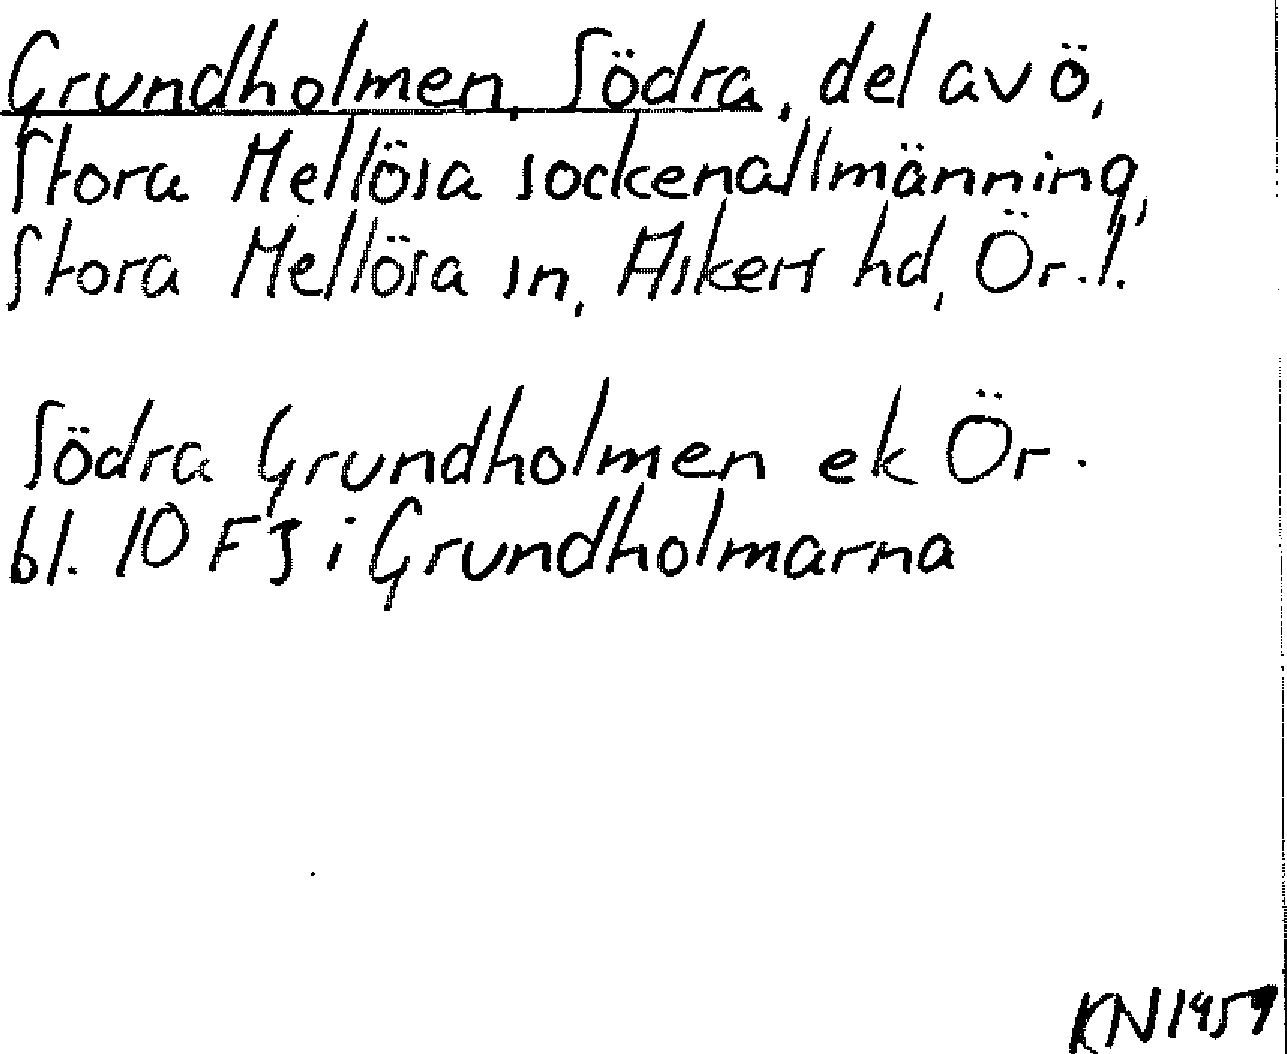 Grundholmen, Södra, del av ö,
Stora Mellösa sockenallmänning,
Stora Mellösa sn, Askers hd, Ör. l.
Södra Grundholmen ek Ör.
bl. 10 F J i Grundholmarna
KN 1959